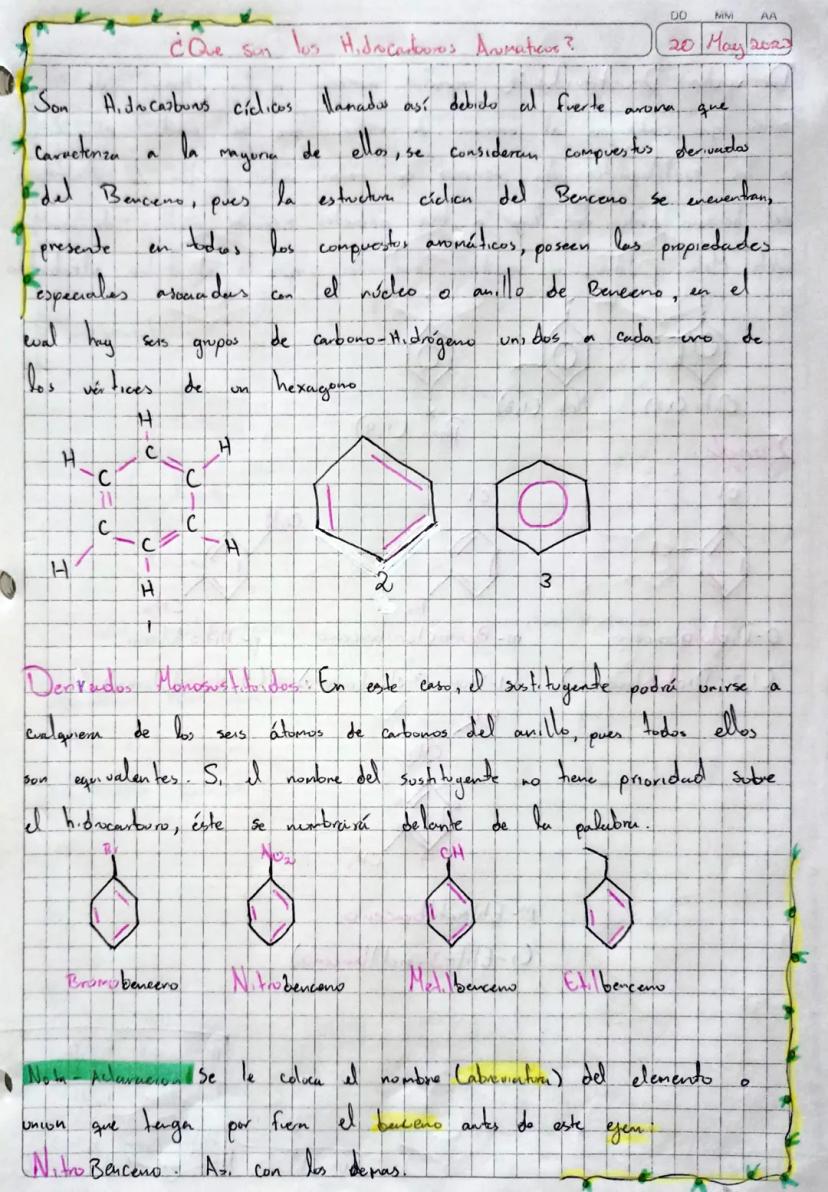 DD MM AA
¿Que son los Hidrocarburos Aromaticos? 20 May 2023
Son Hidrocarburos cíclicos llamados así debido al fuerte aroma que
caracteriza a la mayoria de ellos, se consideran compuestos derivados
del Benceno, pues la estructura cíclica del Benceno se encuentran,
presente en todos los compuestos aromáticos, poseen las propiedades
especiales asociadas con el núcleo o anillo de Benceno, en el
cual hay seis grupos de carbono-Hidrógeno unidos a cada uno de
los vértices de un hexagono
H
H C H
C C
C C
H C H
H
1 2 3
Derivados Monosustituidos: En este caso, el sustituyente podrá unirse a
cualquiera de los seis átomos de carbonos del anillo, pues todos ellos
son equivalentes. Si el nombre del sustituyente no tiene prioridad sobre
el hidrocarburo, éste se nombrará delante de la palabra.
Br NO2 CH
Bromobenceno Nitrobenceno Metilbenceno Etilbenceno
Nota-Aclaracion Se le coloca el nombre (abreviatura) del elemento o
union que tenga por fuera el benceno antes de este ejem:
NitroBenceno. Asi con los demas.